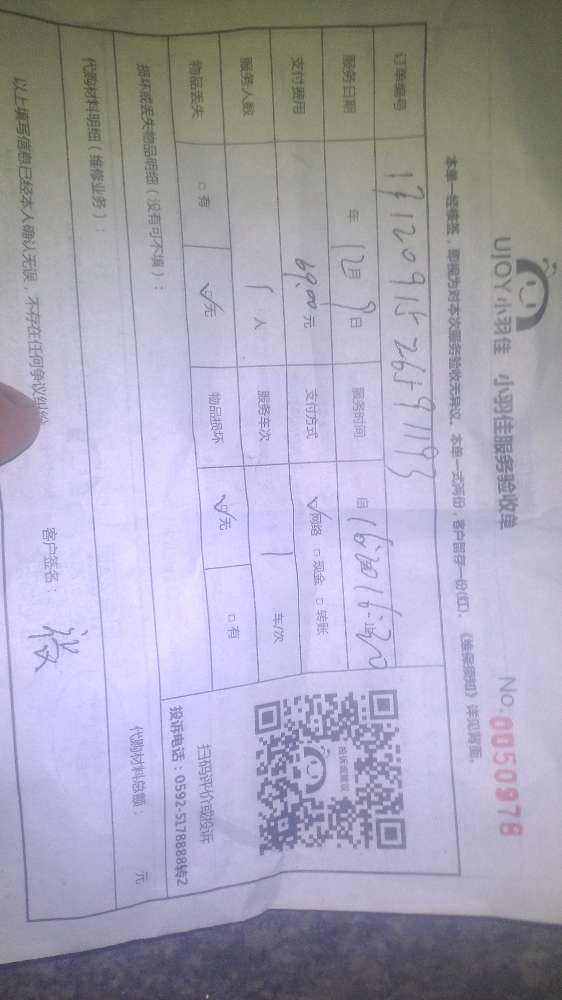 UJOY小羽佳 小羽佳服务验收单
No.0050978
本单一经核签，即视为对本次服务验收无异议。本单一式两份，客户留存一份(红)。《维保须知》详见背面。
订单编号
服务日期 年 12月 9日 服务时间 自 16:00 止 16:20
支付费用 69.00元 支付方式 ☑网络 □现金 □转账
服务人数 1人 服务车次 1 车/次
物品丢失 □有 ☑无 物品损坏 ☑无 □有
投诉或建议
扫码评价或投诉
投诉电话：0592-5178888转2
损坏或丢失物品明细（没有可不填）：
代购材料明细（维修业务）： 代购材料总额： 元
以上填写信息已经本人确认无误，不存在任何争议纠纷 客户签名：